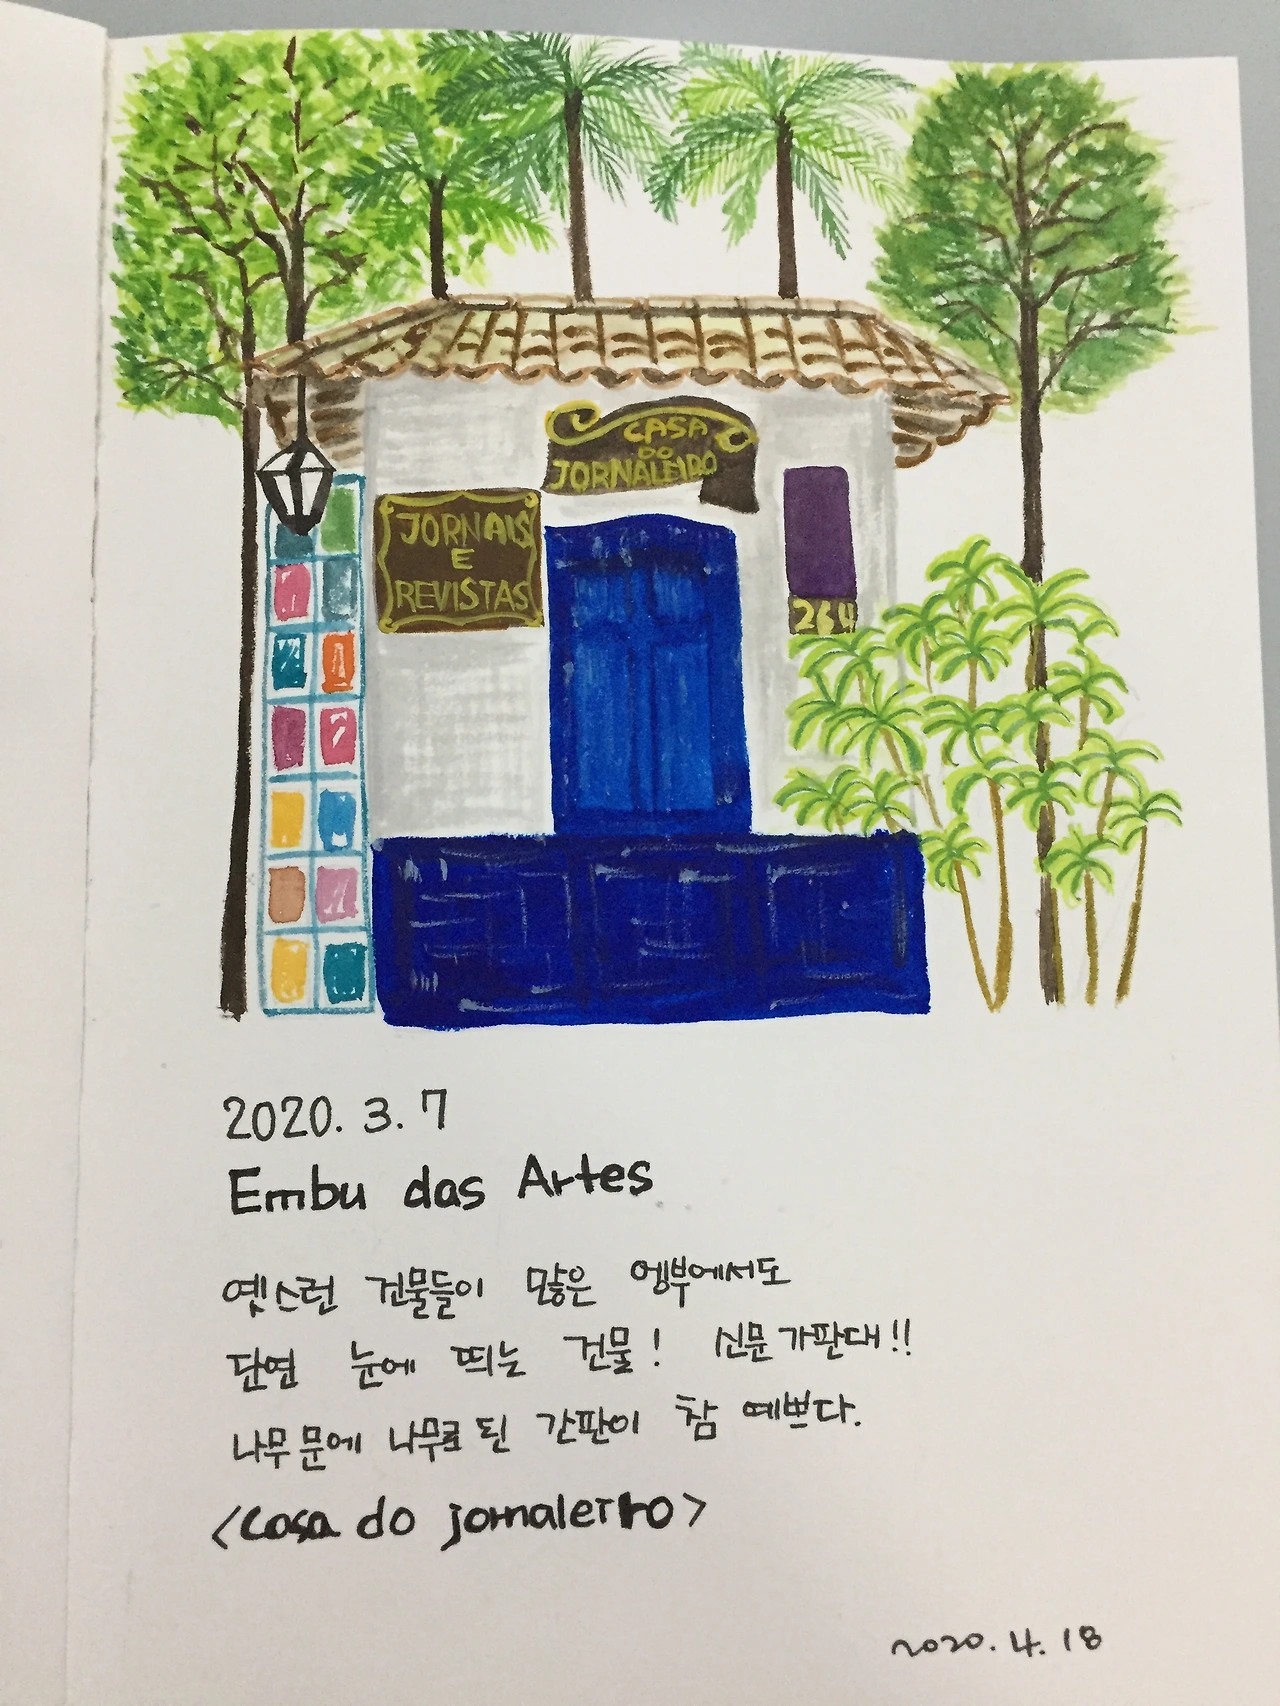 CASA
DO
JORNALEIDO
JORNAIS
E
REVISTAS
264
2020. 3. 7
Embu das Artes
옛스런 건물들이 많은 엠부에서도
단연 눈에 띄는 건물! 신문 가판대!!
나무 문에 나무로 된 간판이 참 예쁘다.
<casa do jornaleiro>
2020. 4. 18